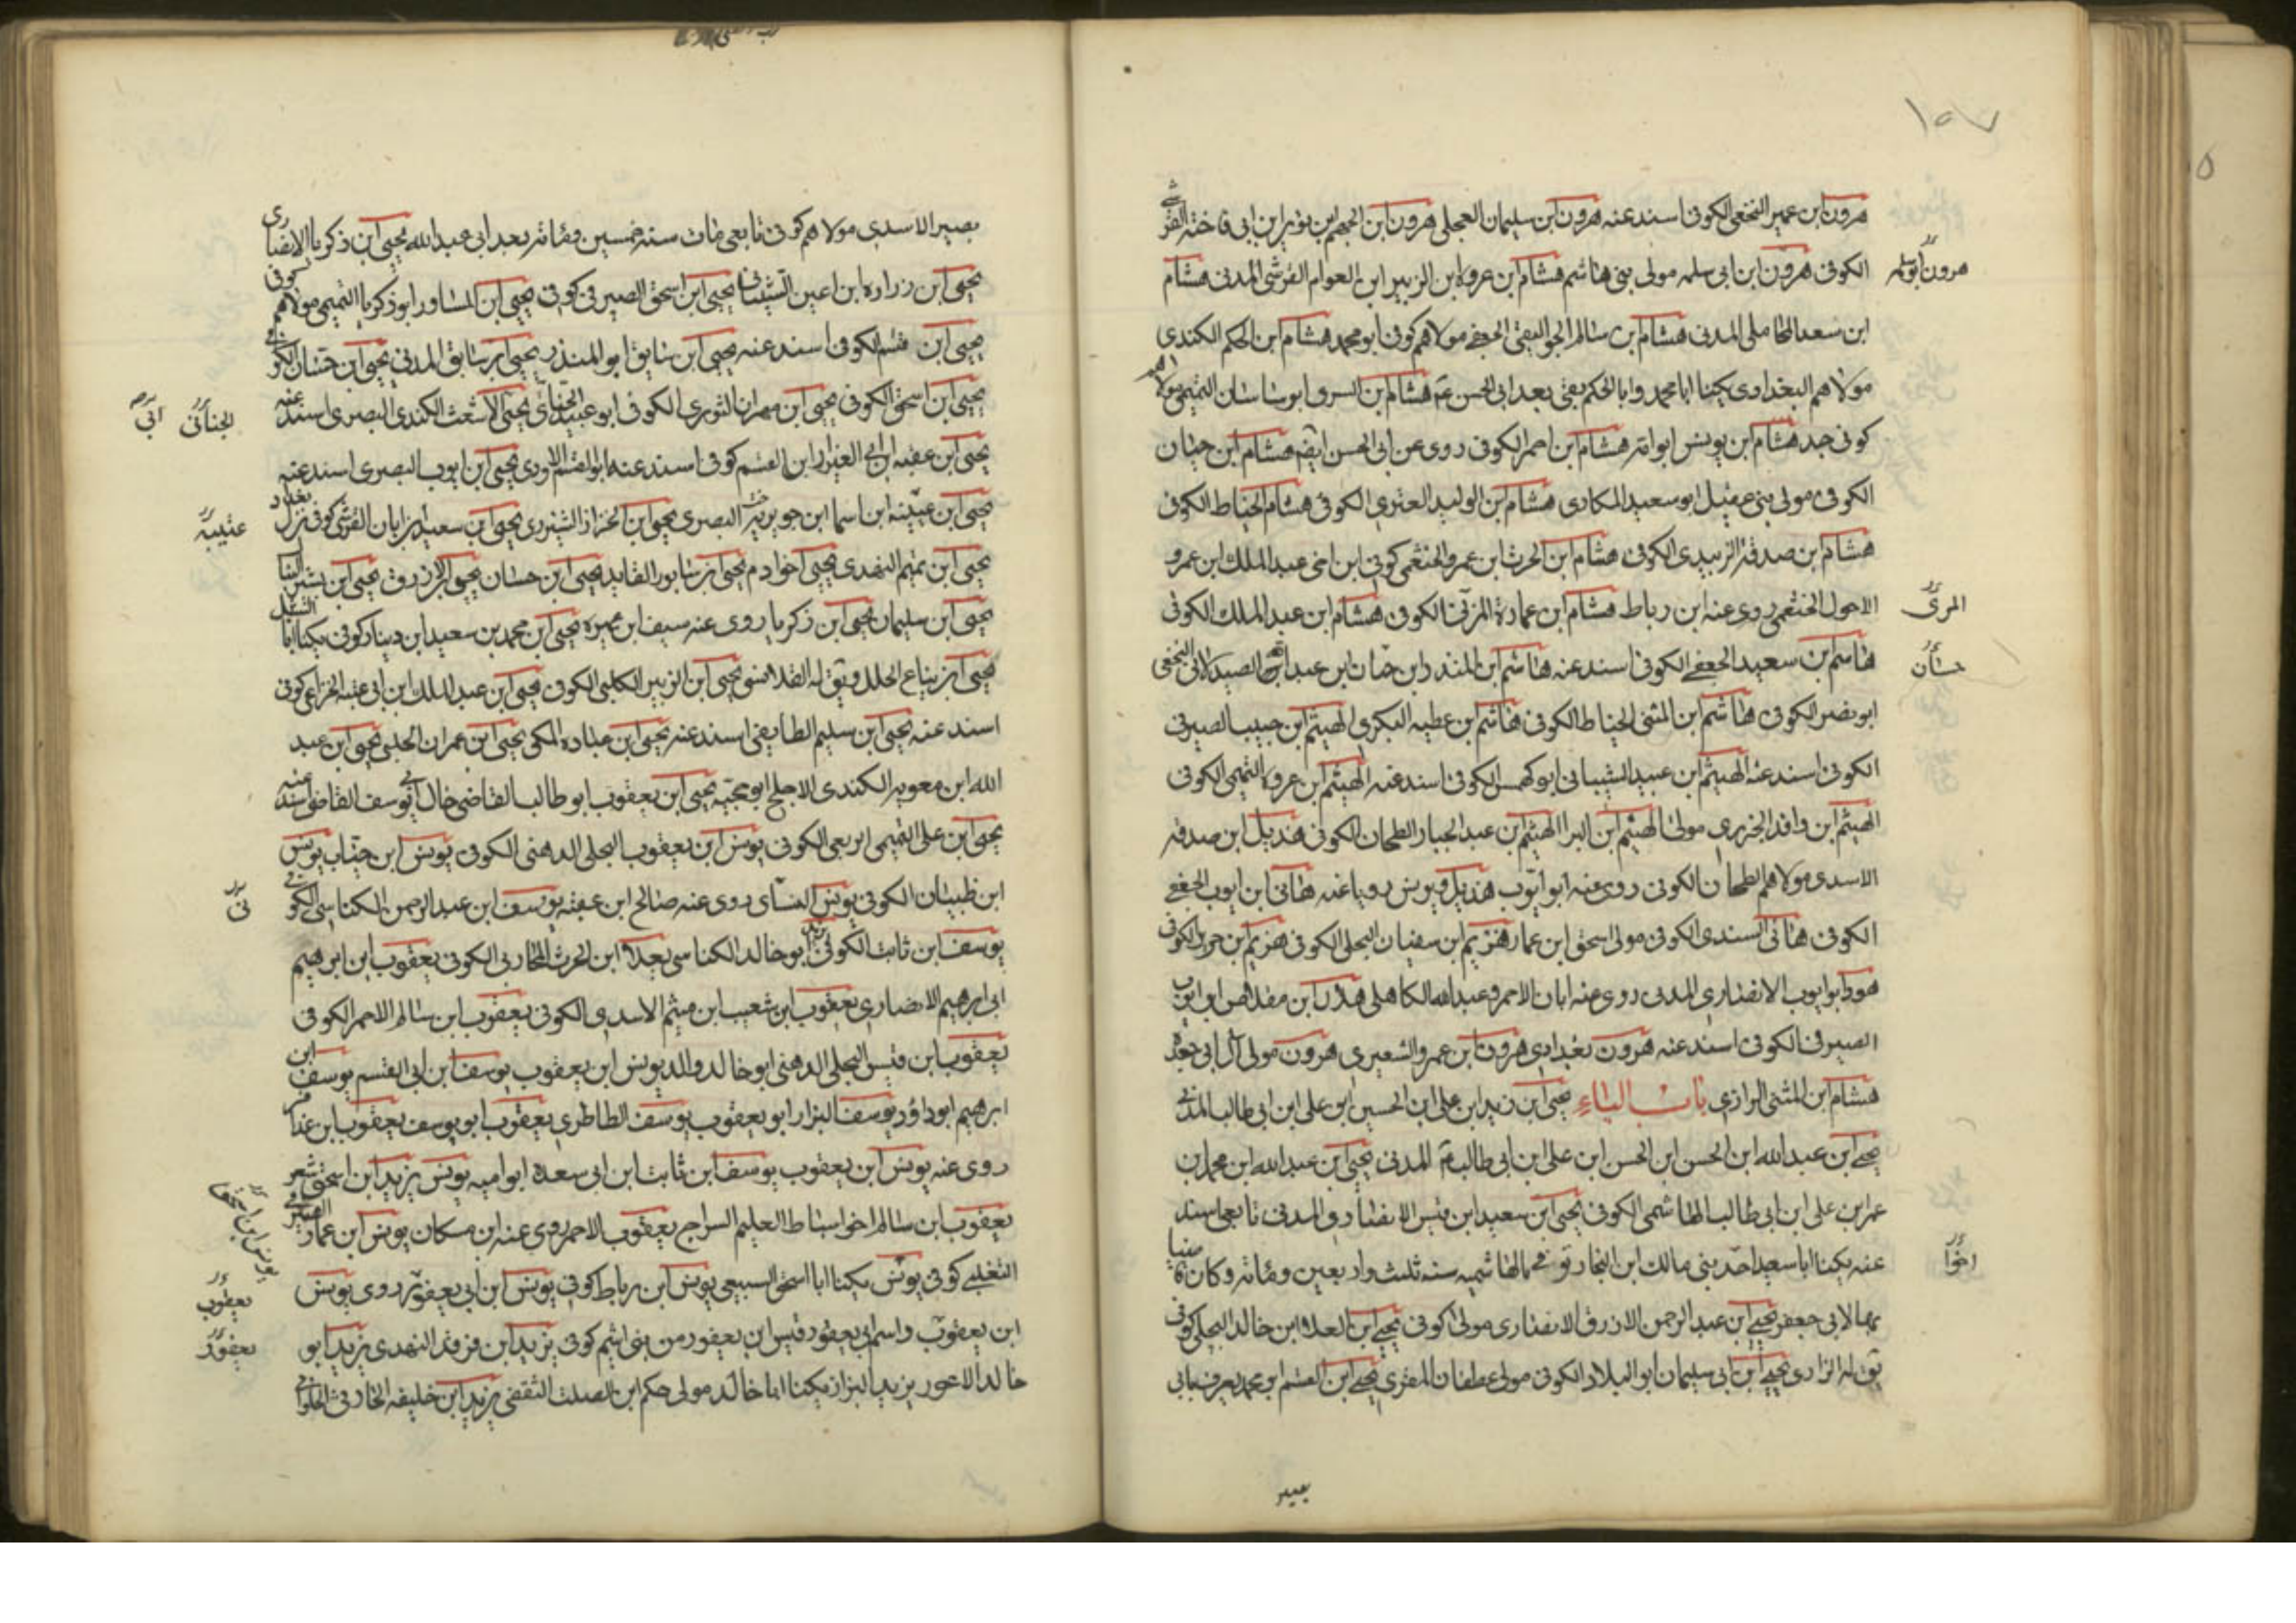 ١٥٧
هرون ابن عمير النخعي الكوفي اسند عنه هرون ابن سليمان العجلي هرون ابن الجهم ابن ثوير ابن ابي فاخته القرشي
هرون ابو سلمه
الكوفي هرون ابن ابي سلمه مولى بني هاشم هشام ابن عروه ابن الزبير ابن العوام القرشي المدني هشام
ابن سعد المحاملي المدني هشام بن سالم الجواليقي الجعفي مولاهم كوفي ابو محمد هشام ابن الحكم الكندي
مولاهم البغدادي يكنا ابا محمد وابا الحكم بقي بعد ابي الحسن عم هشام ابن السري ابو ساسان التميمي مولاهم
كوفي جد هشام ابن يونس ابو امه هشام ابن احمر الكوفي روى عن ابي الحسن ايضا هشام ابن حيان
الكوفي مولى بني عقيل ابو سعيد المكاري هشام ابن الوليد العنزي الكوفي هشام الحناط الكوفي
هشام ابن صدقه الزبيدي الكوفي هشام ابن الحرث ابن عمرو الخثعمي كوفي ابن اخي عبد الملك ابن عمرو
المري
الاحول الخثعمي روى عنه ابن رباط هشام ابن عماره المزني الكوفي هشام ابن عبد الملك الكوفي
حسان
هاشم بن سعيد الجعفي الكوفي اسند عنه هاشم ابن المنذر ابن حسان ابن عبد الله الصيدلاني النخعي
ابو نصر الكوفي هاشم ابن المثنى الحناط الكوفي هاشم ابن عطيه البكري الهيثم ابن حبيب الصيرفي
الكوفي اسند عنه الهيثم ابن عبيد الشيباني ابو كهمس الكوفي اسند عنه الهيثم ابن عروه التميمي الكوفي
الهيثم ابن واقد الجزري مولى الهيثم ابن البرا الهيثم ابن عبد الجبار الطحان الكوفي هذيل ابن صدقه
الاسدي مولاهم الطحان الكوفي روى عنه ابو ايوب هذيل ويونس رويا عنه هاني ابن ايوب الجعفي
الكوفي هاني السندي الكوفي مولى اسحق ابن عمار هزيم ابن سفيان البجلي الكوفي هزيم ابن حريز الكوفي
هود ابو ايوب الانصاري المدني روى عنه ابان الاحمر وعبد الله الكاهلي هلال ابن مقلاص ابو ايوب
الصيرفي الكوفي اسند عنه هرون بغدادي هرون ابن عمرو الشعيري هرون مولى آل ابي جعده
هشام ابن المثنى الرازي باب الياء يحيى ابن زيد ابن علي ابن الحسين ابن علي ابن ابي طالب المدني
يحيى ابن عبد الله ابن الحسن ابن الحسن ابن علي ابن ابي طالب عم المدني يحيى ابن عبد الله ابن محمد بن
عمر ابن علي ابن ابي طالب الهاشمي الكوفي يحيى ابن سعيد ابن قيس الانصاري المدني تابعي اسند
اخوا
عنه يكنا ابا سعيد احد بني مالك ابن النجار توفي بالهاشميه سنه ثلث واربعين ومائه وكان قاضيا
بها لابي جعفر يحيى ابن عبد الرحمن الازرق الانصاري مولى كوفي يحيى ابن العلا ابن خالد البجلي كوفي
يق له الرازي يحيى ابن ابي سليمان ابو البلاد الكوفي مولى غطفان المقري يحيى ابن القسم ابو محمد يعرف بابي
بصير
بصير الاسدي مولاهم كوفي تابعي مات سنه خمسين ومائه بعد ابي عبد الله يحيى ابن زكريا الانصاري
يحيى ابن زراره ابن اعين الشيباني يحيى ابن اسحق الصيرفي كوفي يحيى ابن المساور ابو زكريا التميمي مولاهم كوفي
يحيى ابن قسم الكوفي اسند عنه يحيى ابن سابق ابو المنذر يحيى ابن سابق المدني يحيى ابن حسان الكوفي
الجناني
يحيى ابن اسحق الكوفي يحيى ابن مهران الثوري الكوفي ابو عبيد يحيى الاشعث الكندي البصري اسند عنه
يحيى ابن عقبه ابن ابي العيزار ابن القسم كوفي اسند عنه ابو القسم الازدي يحيى ابن ايوب البصري اسند عنه
عتيبه
يحيى ابن عيينه ابن اسما ابن جويريه البصري يحيى ابن الخزاز يحيى ابن سعيد ابن ابان القرشي كوفي نزل بغداد
يحيى ابن تميم النهدي يحيى اخو ادم يحيى ابن سابور القايد يحيى ابن حسان يحيى الازرق يحيى ابن بشير النبال
يحيى ابن سليمان يحيى ابن زكريا روى عنه سيف ابن عميره يحيى ابن محمد بن سعيد ابن دينار كوفي يكنا ابا الشبل
يحيى ابن بياع الحلل ويق له القلانسي يحيى ابن الزبير الكلبي الكوفي يحيى ابن عبد الملك ابن ابي عتبه الخزاعي كوفي
اسند عنه يحيى ابن سليم الطايفي اسند عنه يحيى ابن ميناده المكي يحيى ابن عمران الحلبي يحيى ابن عبد
الله ابن معويه الكندي الاجلح ابو حجيه يحيى ابن يعقوب ابو طالب القاضي خال ابي يوسف القاضي اسند عنه
يحيى ابن علي التميمي الربعي الكوفي يونس ابن يعقوب البجلي الدهني الكوفي يونس ابن خباب يونس
ابن ظبيان الكوفي يونس روى عنه صالح ابن عقبه يوسف ابن عبد الرحمن الكناسي الكوفي
يوسف ابن ثابت الكوفي ابو خالد الكناسي يعلا ابن الحرث المحاربي الكوفي يعقوب ابن ابرهيم
ابي ابرهيم الانصاري يعقوب ابن شعيب ابن ميثم الاسدي الكوفي يعقوب ابن سالم الاحمر الكوفي
يعقوب ابن قيس البجلي الدهني ابو خالد والد يونس ابن يعقوب يوسف ابن ابي القسم يوسف ابن
ابرهيم ابو داؤد يوسف البزار ابو يعقوب يوسف الطاطري يعقوب ابو يوسف يعقوب ابن عذافر
روى عنه يونس ابن يعقوب يوسف ابن ثابت ابن ابي سعده ابو اميه يونس يزيد ابن اسحق شعر
يعقوب ابن سالم اخو اسباط العليم السراج يعقوب الاحمر روى عنه ابن مسكان يونس ابن عمار الصيرفي
يعقوب
التغلبي كوفي يونس يكنا ابا اسحق السبيعي يونس ابن رباط كوفي يونس ابن ابي يعفور روى يونس
يعفور
ابن يعقوب واسم ابي يعفور قيس ابن يعفور من بني اشيم كوفي يزيد ابن فرقد النهدي يزيد ابو
خالد الاعور يزيد البزاز يكنا ابا خالد مولى حكم ابن الصلت الثقفي يزيد ابن خليفه الحارثي الحلواني